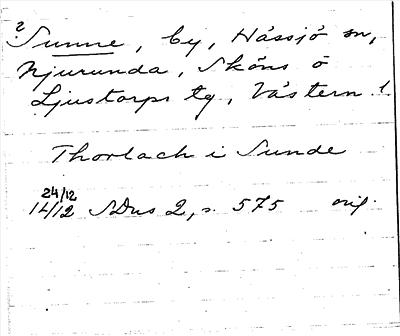 ?
Sunne, by, Hässjö sn,
Njurunda, Sköns o
Ljustorps tg, Västern. l.
Thorlach i Sunde
24/12
14/12 SDns 2, s. 575 orig.